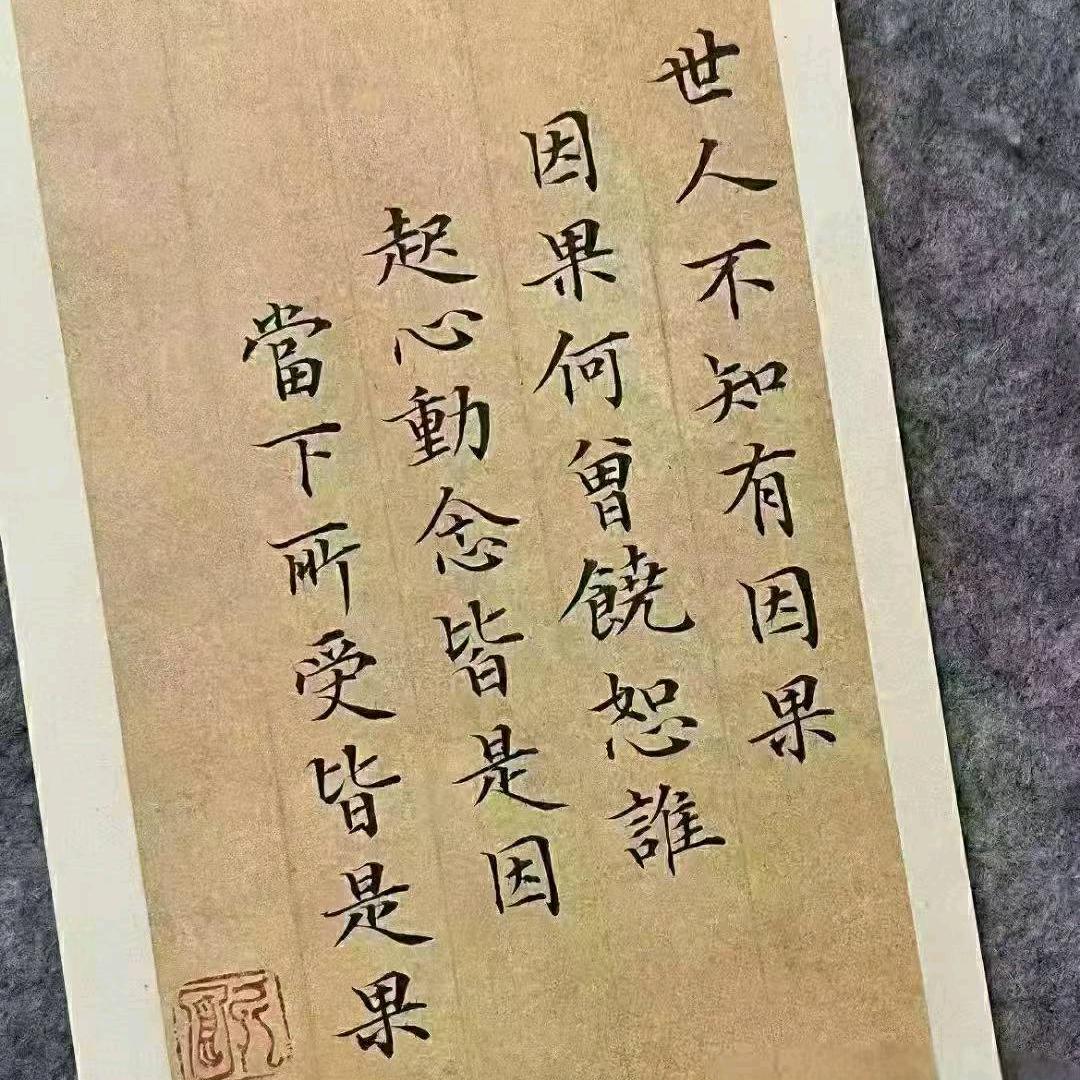 世人不知有因果
因果何曾饒恕誰
起心動念皆是因
當下所受皆是果